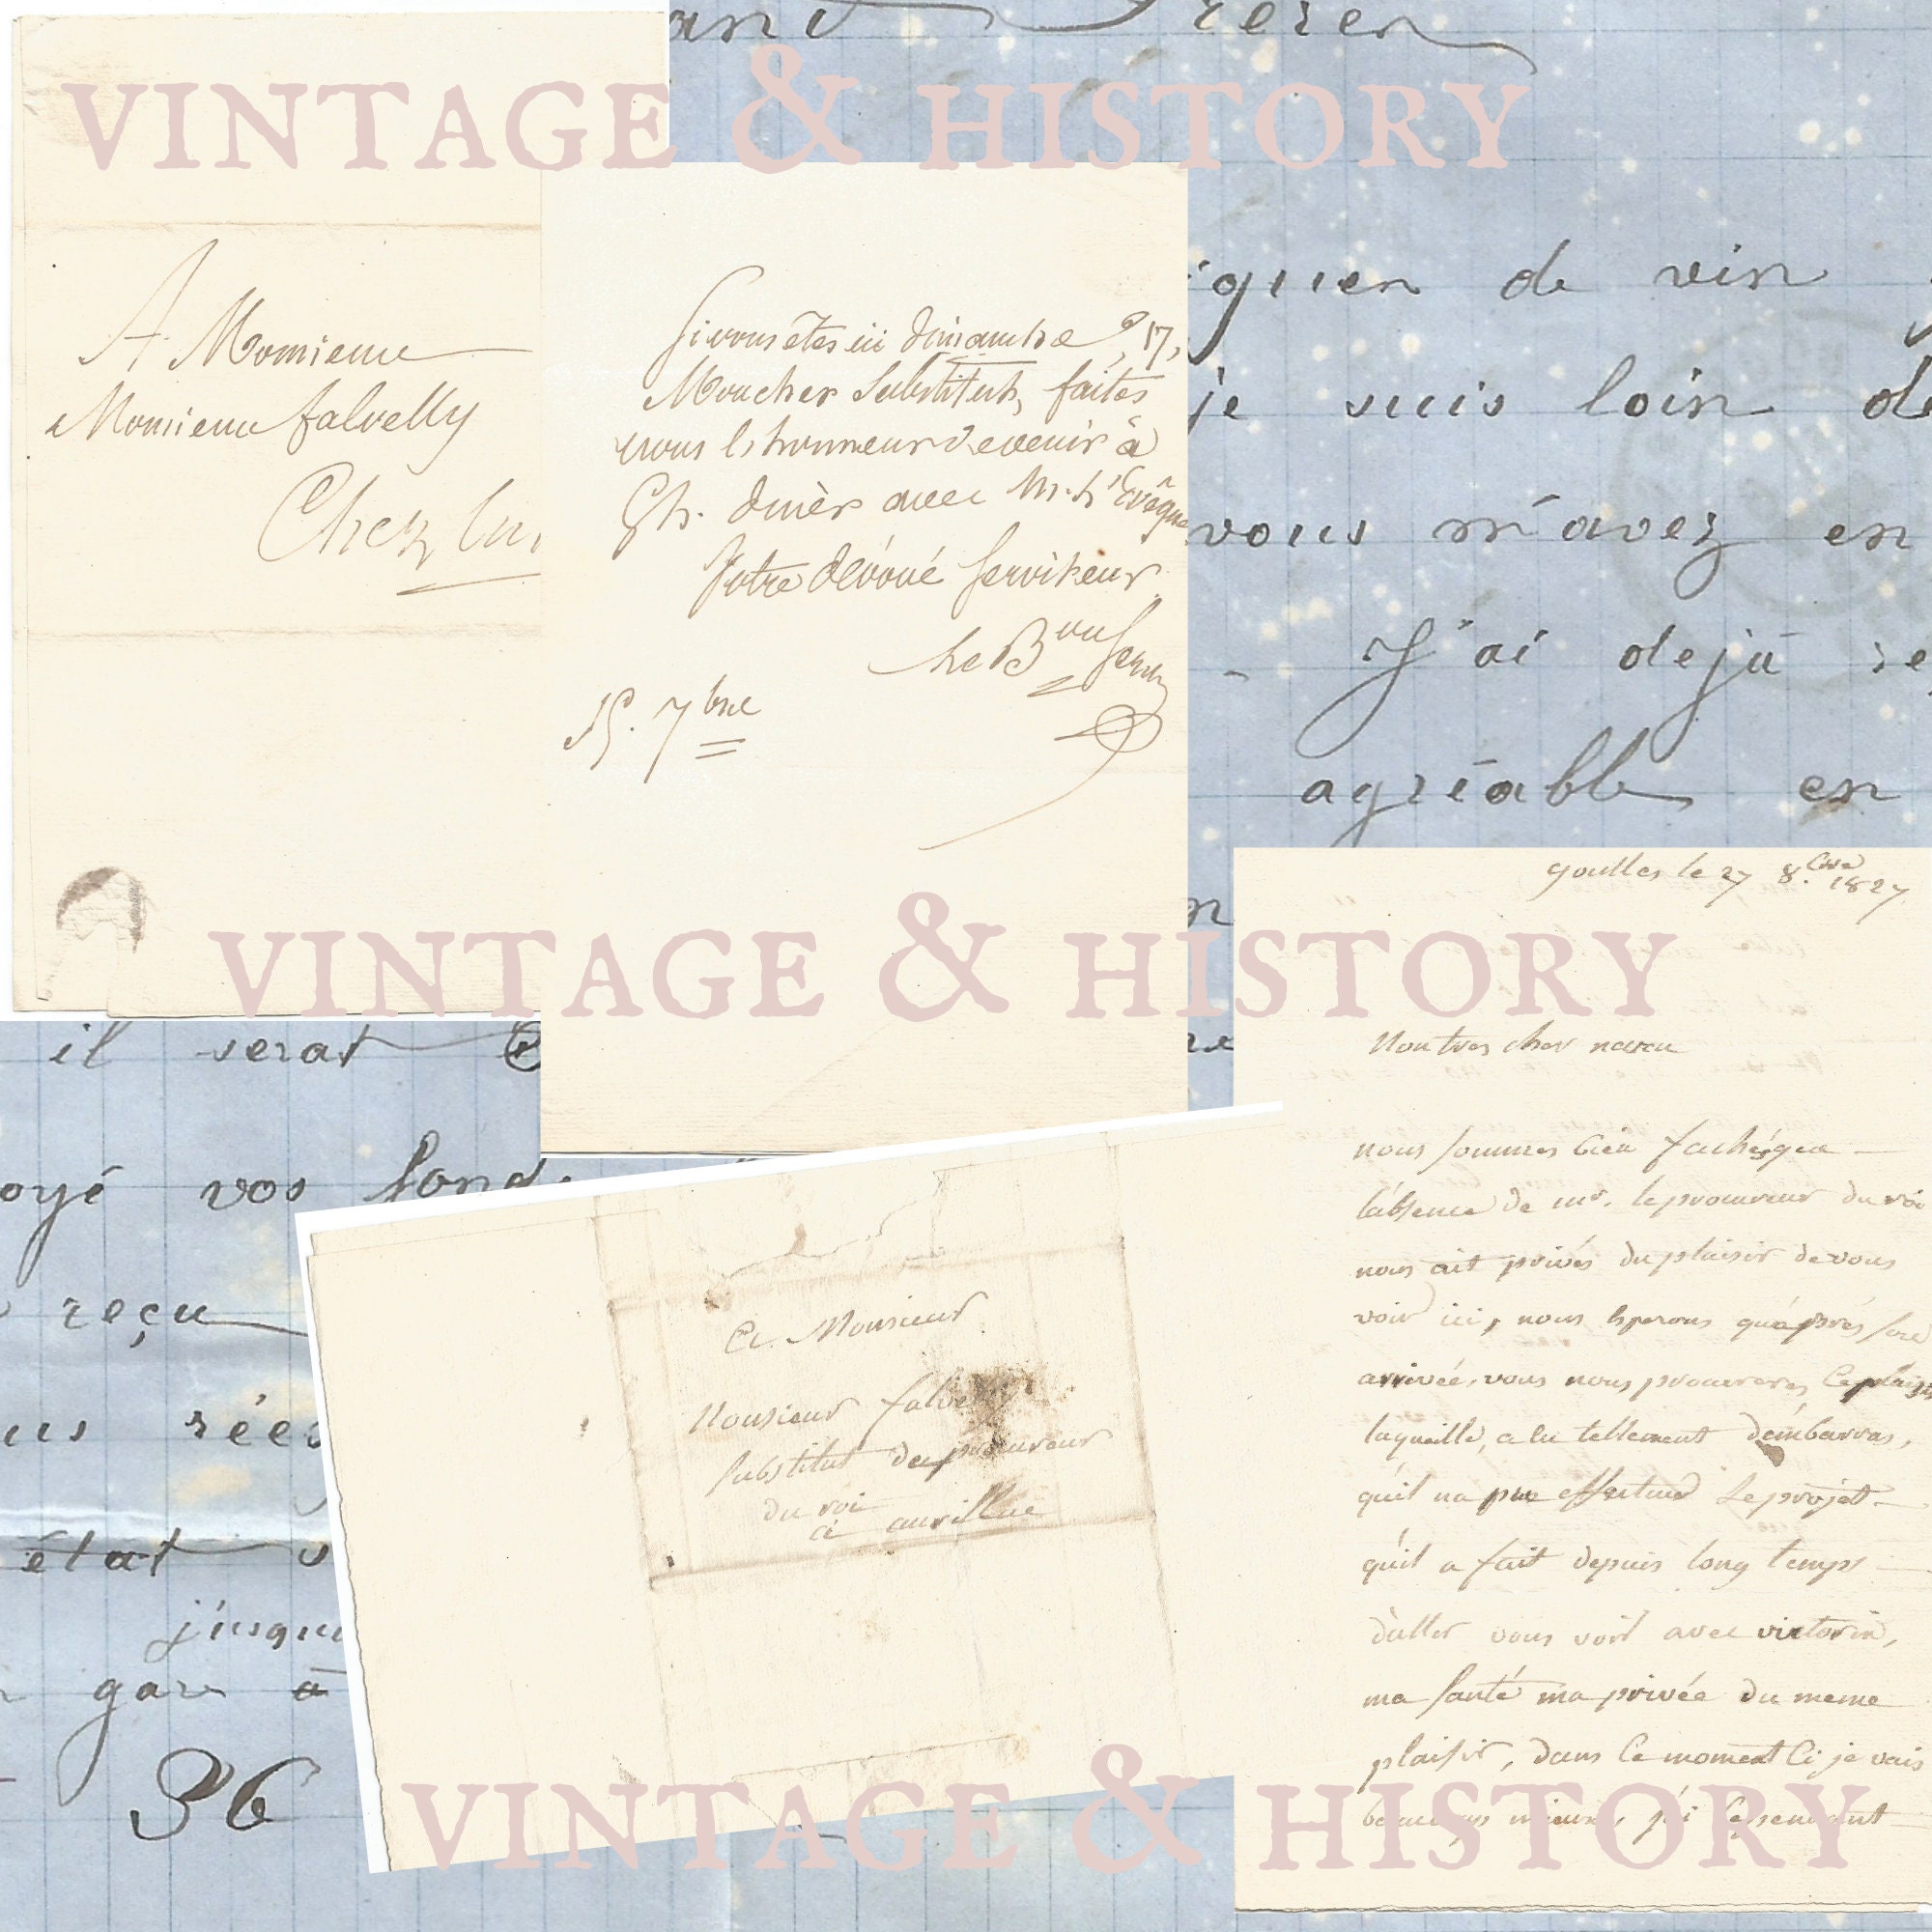 VINTAGE & HISTORY
A Monsieur
Monsieur falvelly
Chez lui
Si vous êtes ici dimanche, 17,
Mon cher Substitut, faites
nous l'honneur de venir à
5h. diner avec Mr. L'Evêque
Votre dévoué Serviteur
Le Bon
15. 7bre
frères
de vin
je suis loin
vous m'avez en
J'ai dejà
agréable en
VINTAGE & HISTORY
goulles le 27 8.bre 1827
Mon tres cher neveu
nous sommes bien fachés que
l'absence de mr. le procureur du roi
nous ait privés du plaisir de vous
voir ici, nous esperons qu'aprés son
arrivée, vous nous procurerez ce plaisir
laqueille, a eu tellement d'émbarras,
qu'il na pu effectuer le projet
qu'il a fait depuis long temps
d'aller vous voir avec victorin,
ma santé ma privée du meme
plaisir, dans ce moment ci je vais
beaucoup mieux, j'ai cependant
il serat
vos fonds
reçu
état
jusqu
gare à
36
A Monsieur
Monsieur falvelly
substitut du procureur
du roi
à aurillac
VINTAGE & HISTORY